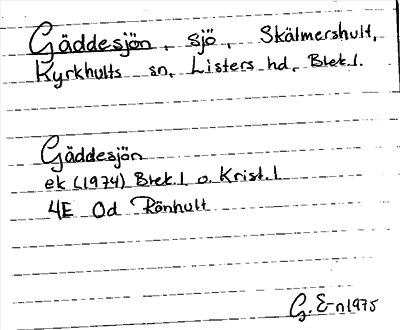 Gäddesjön, sjö, Skälmershult,
Kyrkhults sn, Listers hd, Blek.l.
Gäddesjön
ek (1974) Blek.l o. Krist.l
4E 0d Rönhult
G. E-n 1975